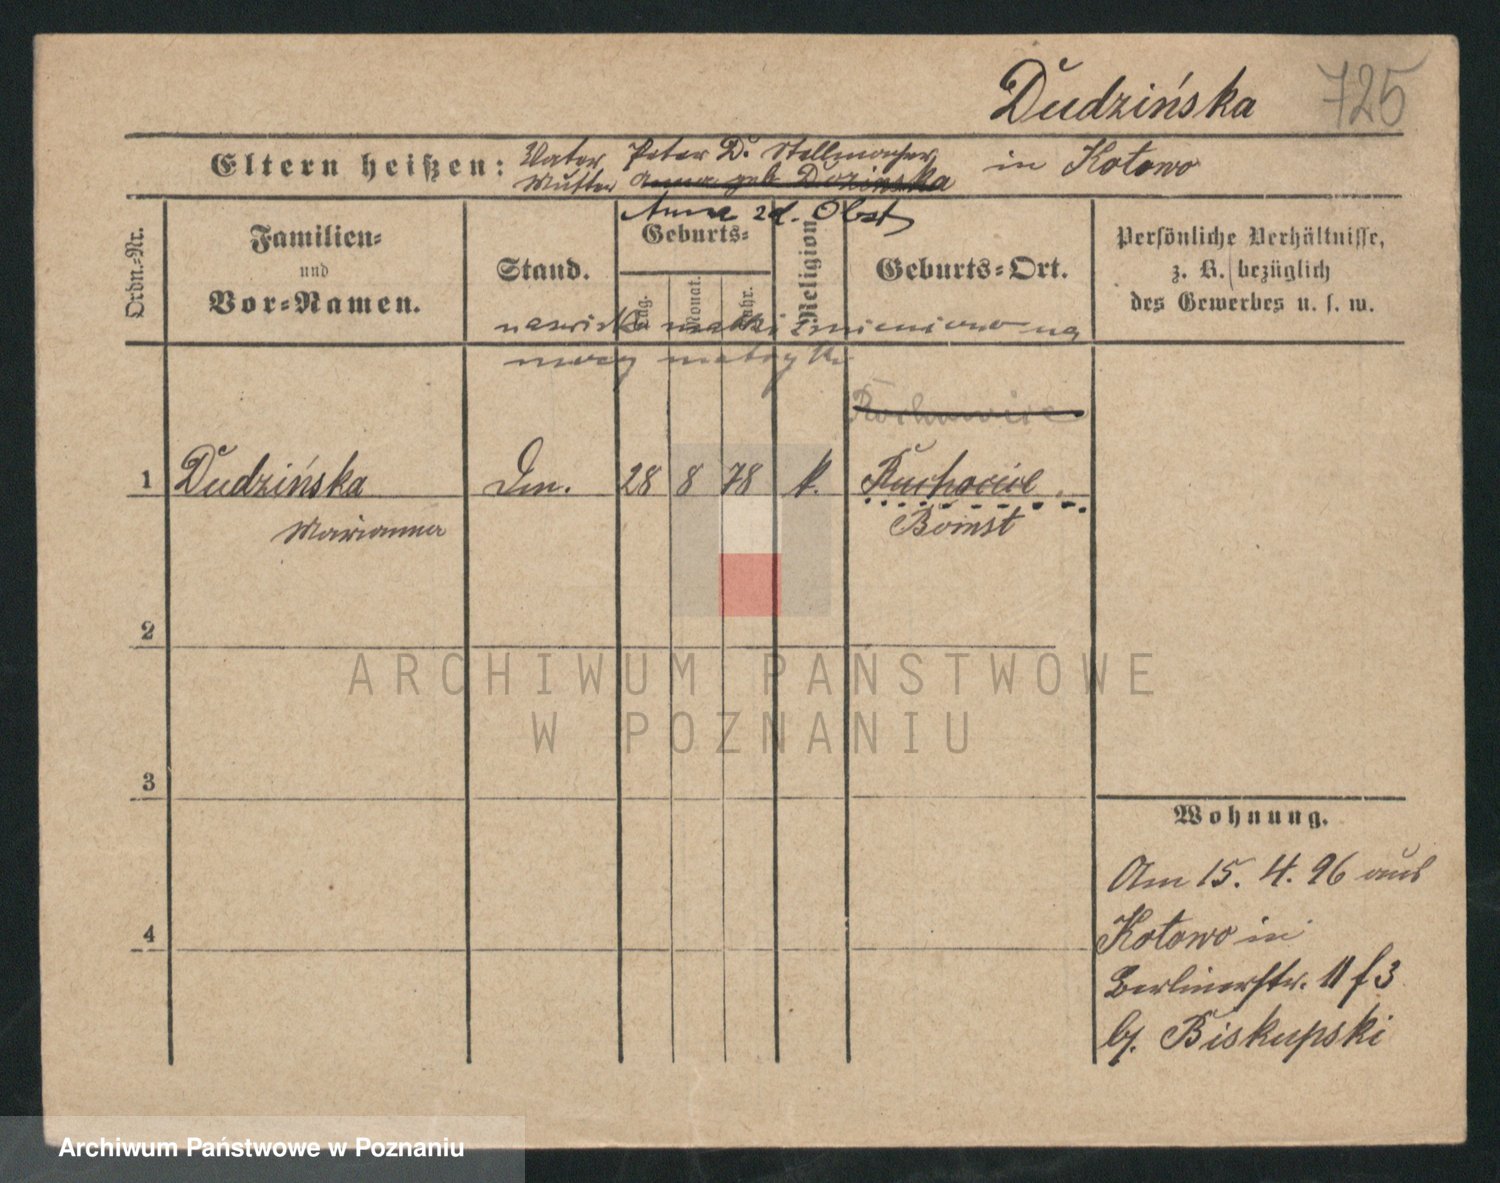 Dudzińska 725
Eltern heißen: Vater Peter D. Stellmacher in Kotowo
Mutter Anna geb Dozinska
Anna zd. Obst
Ordn.-Nr.
Familien=
und
Vor=Namen.
Stand.
Geburts=
Tag.
Monat.
Jahr.
Religion
Geburts=Ort.
Persönliche Verhältnisse,
z. B. bezüglich
des Gewerbes u. s. w.
nazwisko matki zmieniono na
mocy metryki
1 Dudzińska Dm. 28 8 78 k. Ruchocice
Marianna Bomst
2
3
4
Wohnung.
Am 15. 4. 96 aus
Kotowo in
Berlinerstr. 11 f 3
bj. Biskupski
ARCHIWUM PAŃSTWOWE
W POZNANIU
Archiwum Państwowe w Poznaniu